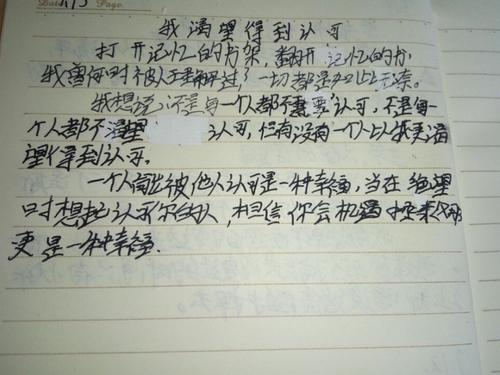 Date 1/5 Page.
我渴望得到认可
打开记忆的书架,翻开 记忆的书
我曾何时被人了解过,一切都是如此无奈。
我想说,不是每一个人都不需要认可,不是每一
个人都不渴望 认可,但有没有一个人比我更渴
望得到认可。
一个人能被他人认可是一种幸福,当在绝望
时想起认可你的人,相信你会
更是一种幸福.